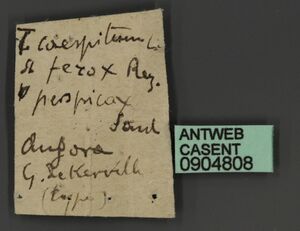 T caespitum L.
st ferox Ruz.
v perspicax
Sant
Angora
G. de Kerville
(type)
ANTWEB
CASENT
0904808